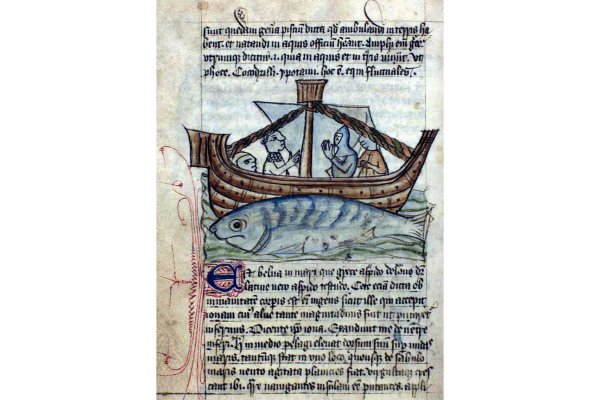 sunt quedam gena pisciu dicta qd ambulandi in terris ha
bent. et natandi in aquis officiu heant. Amphi em gre
utrumque dicitur .i. quia in aquis et in tris vivit. vt
phoce. Cocodrilli. ypotami. hoc e. equi fluctuales.
Est belua in mari que grece aspido delone dr
latine vero aspido testudo. Cete eciam dicta ob
inmanitatem corpis est em ingens sicut ille qui accepit
ionam cui alue tante magnitudinis fuit ut putaret
infernus. Dicente ipo iona. Exaudiuit me de uentre
inferi. h in medio pelagi eleuat dorsum suum sup undas
maris. tantumque stat in uno loco, quousque de sabulo
maris uento agitata planicies fiat. uirgultaque cres
cant ibi. Qre nauigantes insulam ee putantes. appli